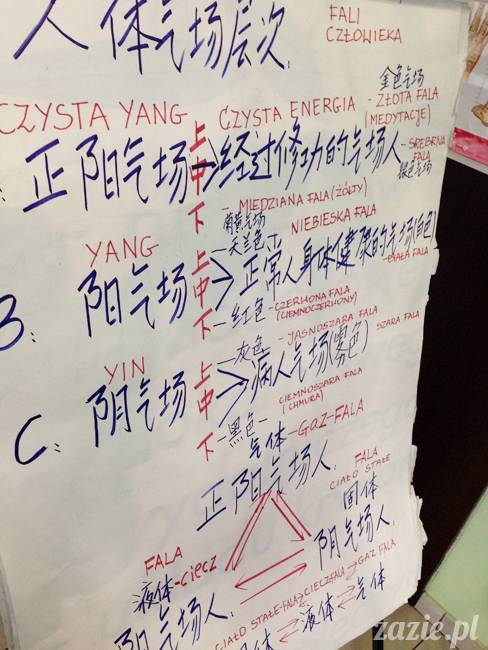 人体气场层次.
FALI
CZŁOWIEKA
CZYSTA YANG
CZYSTA ENERGIA
金色气场
- ZŁOTA FALA
(MEDYTACJE)
正阳气场
上
中
下
经过修功的气场人
- SREBRNA
FALA
银色气场
- MIEDZIANA FALA (ŻÓŁTY)
YANG
NIEBIESKA FALA
- 天兰色 -
B: 阳气场
上
中
下
正常人身体健康的气场(白色)
BIAŁA FALA
- 红色 - CZERWONA FALA
(CIEMNOCZERWONY)
YIN
- 灰色 - JASNOSZARA FALA
SZARA FALA
C: 阴气场
上
中
下
病人气场(雾色)
CIEMNOSZARA FALA
(CHMURA)
- 黑色 -
气体 - GAZ - FALA
正阳气场人.
FALA
CIAŁO STAŁE
固体
阴气场人.
FALA
液体 - CIECZ
阳气场人.
CIAŁO STAŁE-FALA CIECZ FALA GAZ FALA
固体 液体 气体
zazie.pl